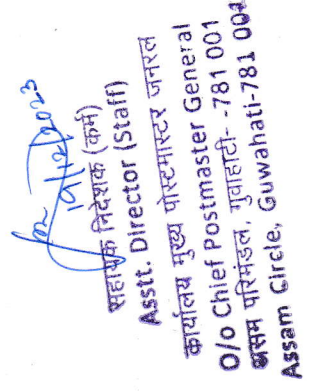 19/12/2023
सहायक निदेशक (कर्म)
Asstt. Director (Staff)
कार्यालय मुख्य पोस्टमास्टर जनरल
O/o Chief Postmaster General
असम परिमंडल, गुवाहाटी- -781 001
Assam Circle, Guwahati-781 001